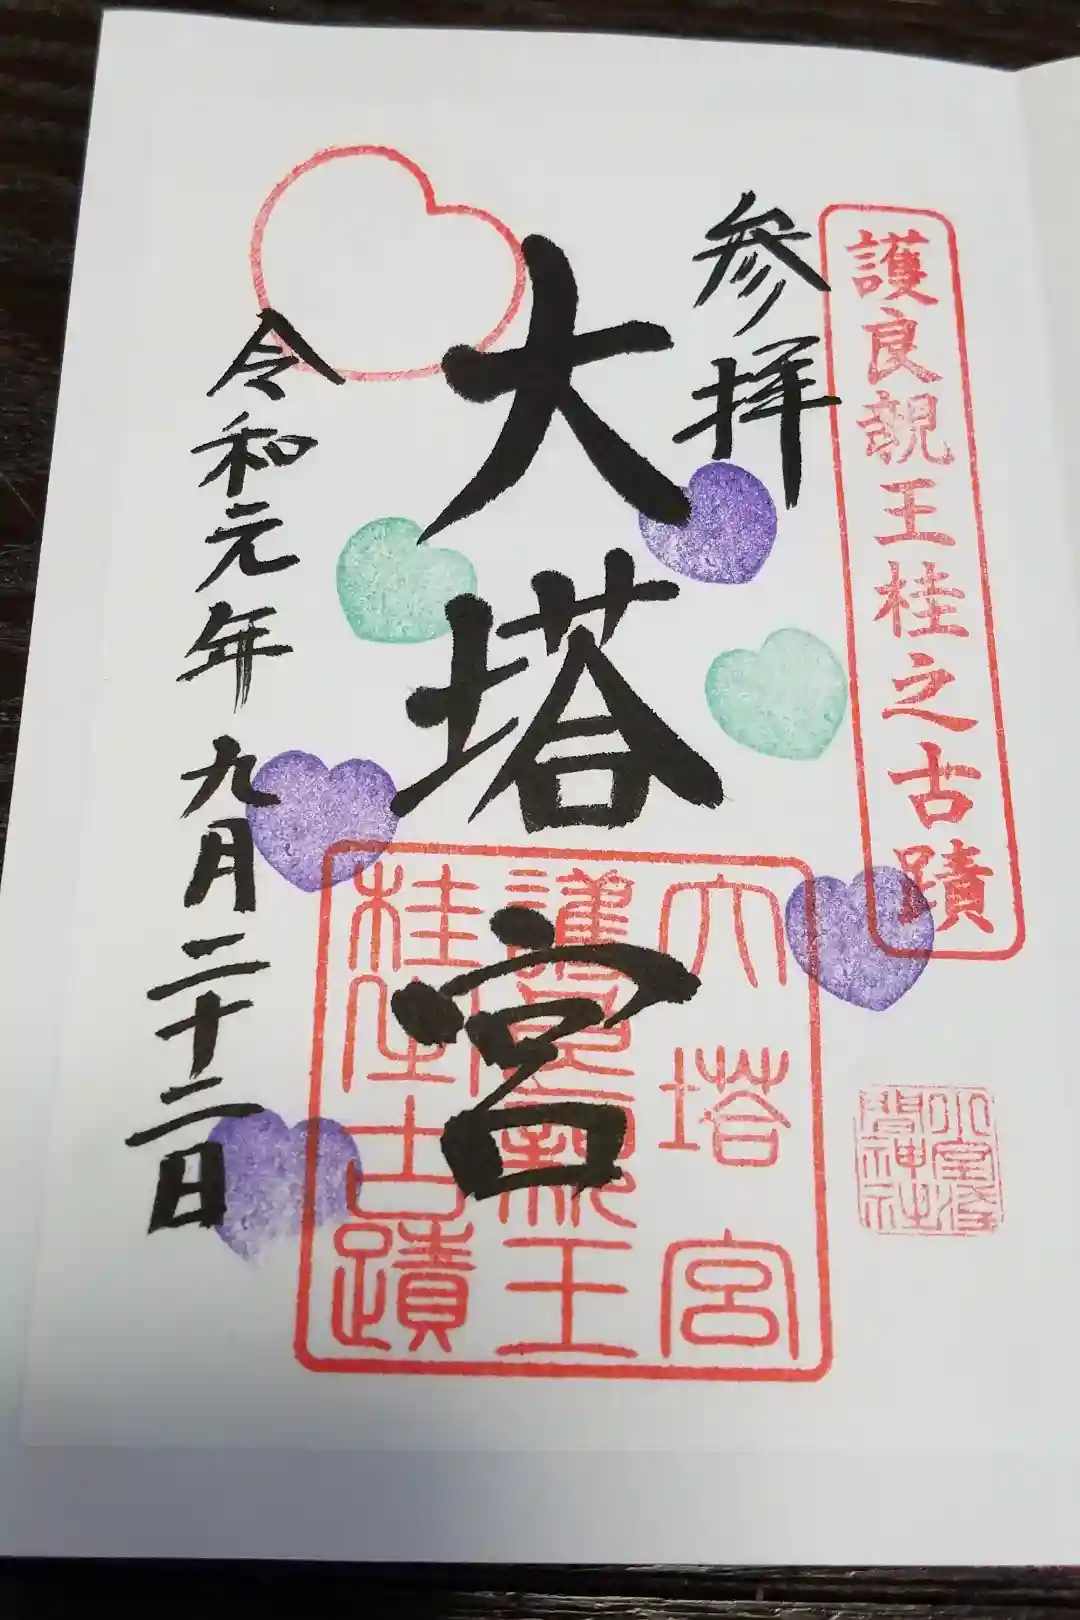 護良親王桂之古蹟
参拝
大塔宮
令和元年九月二十二日
大塔宮
護良親王
桂之古蹟
小室浅間神社